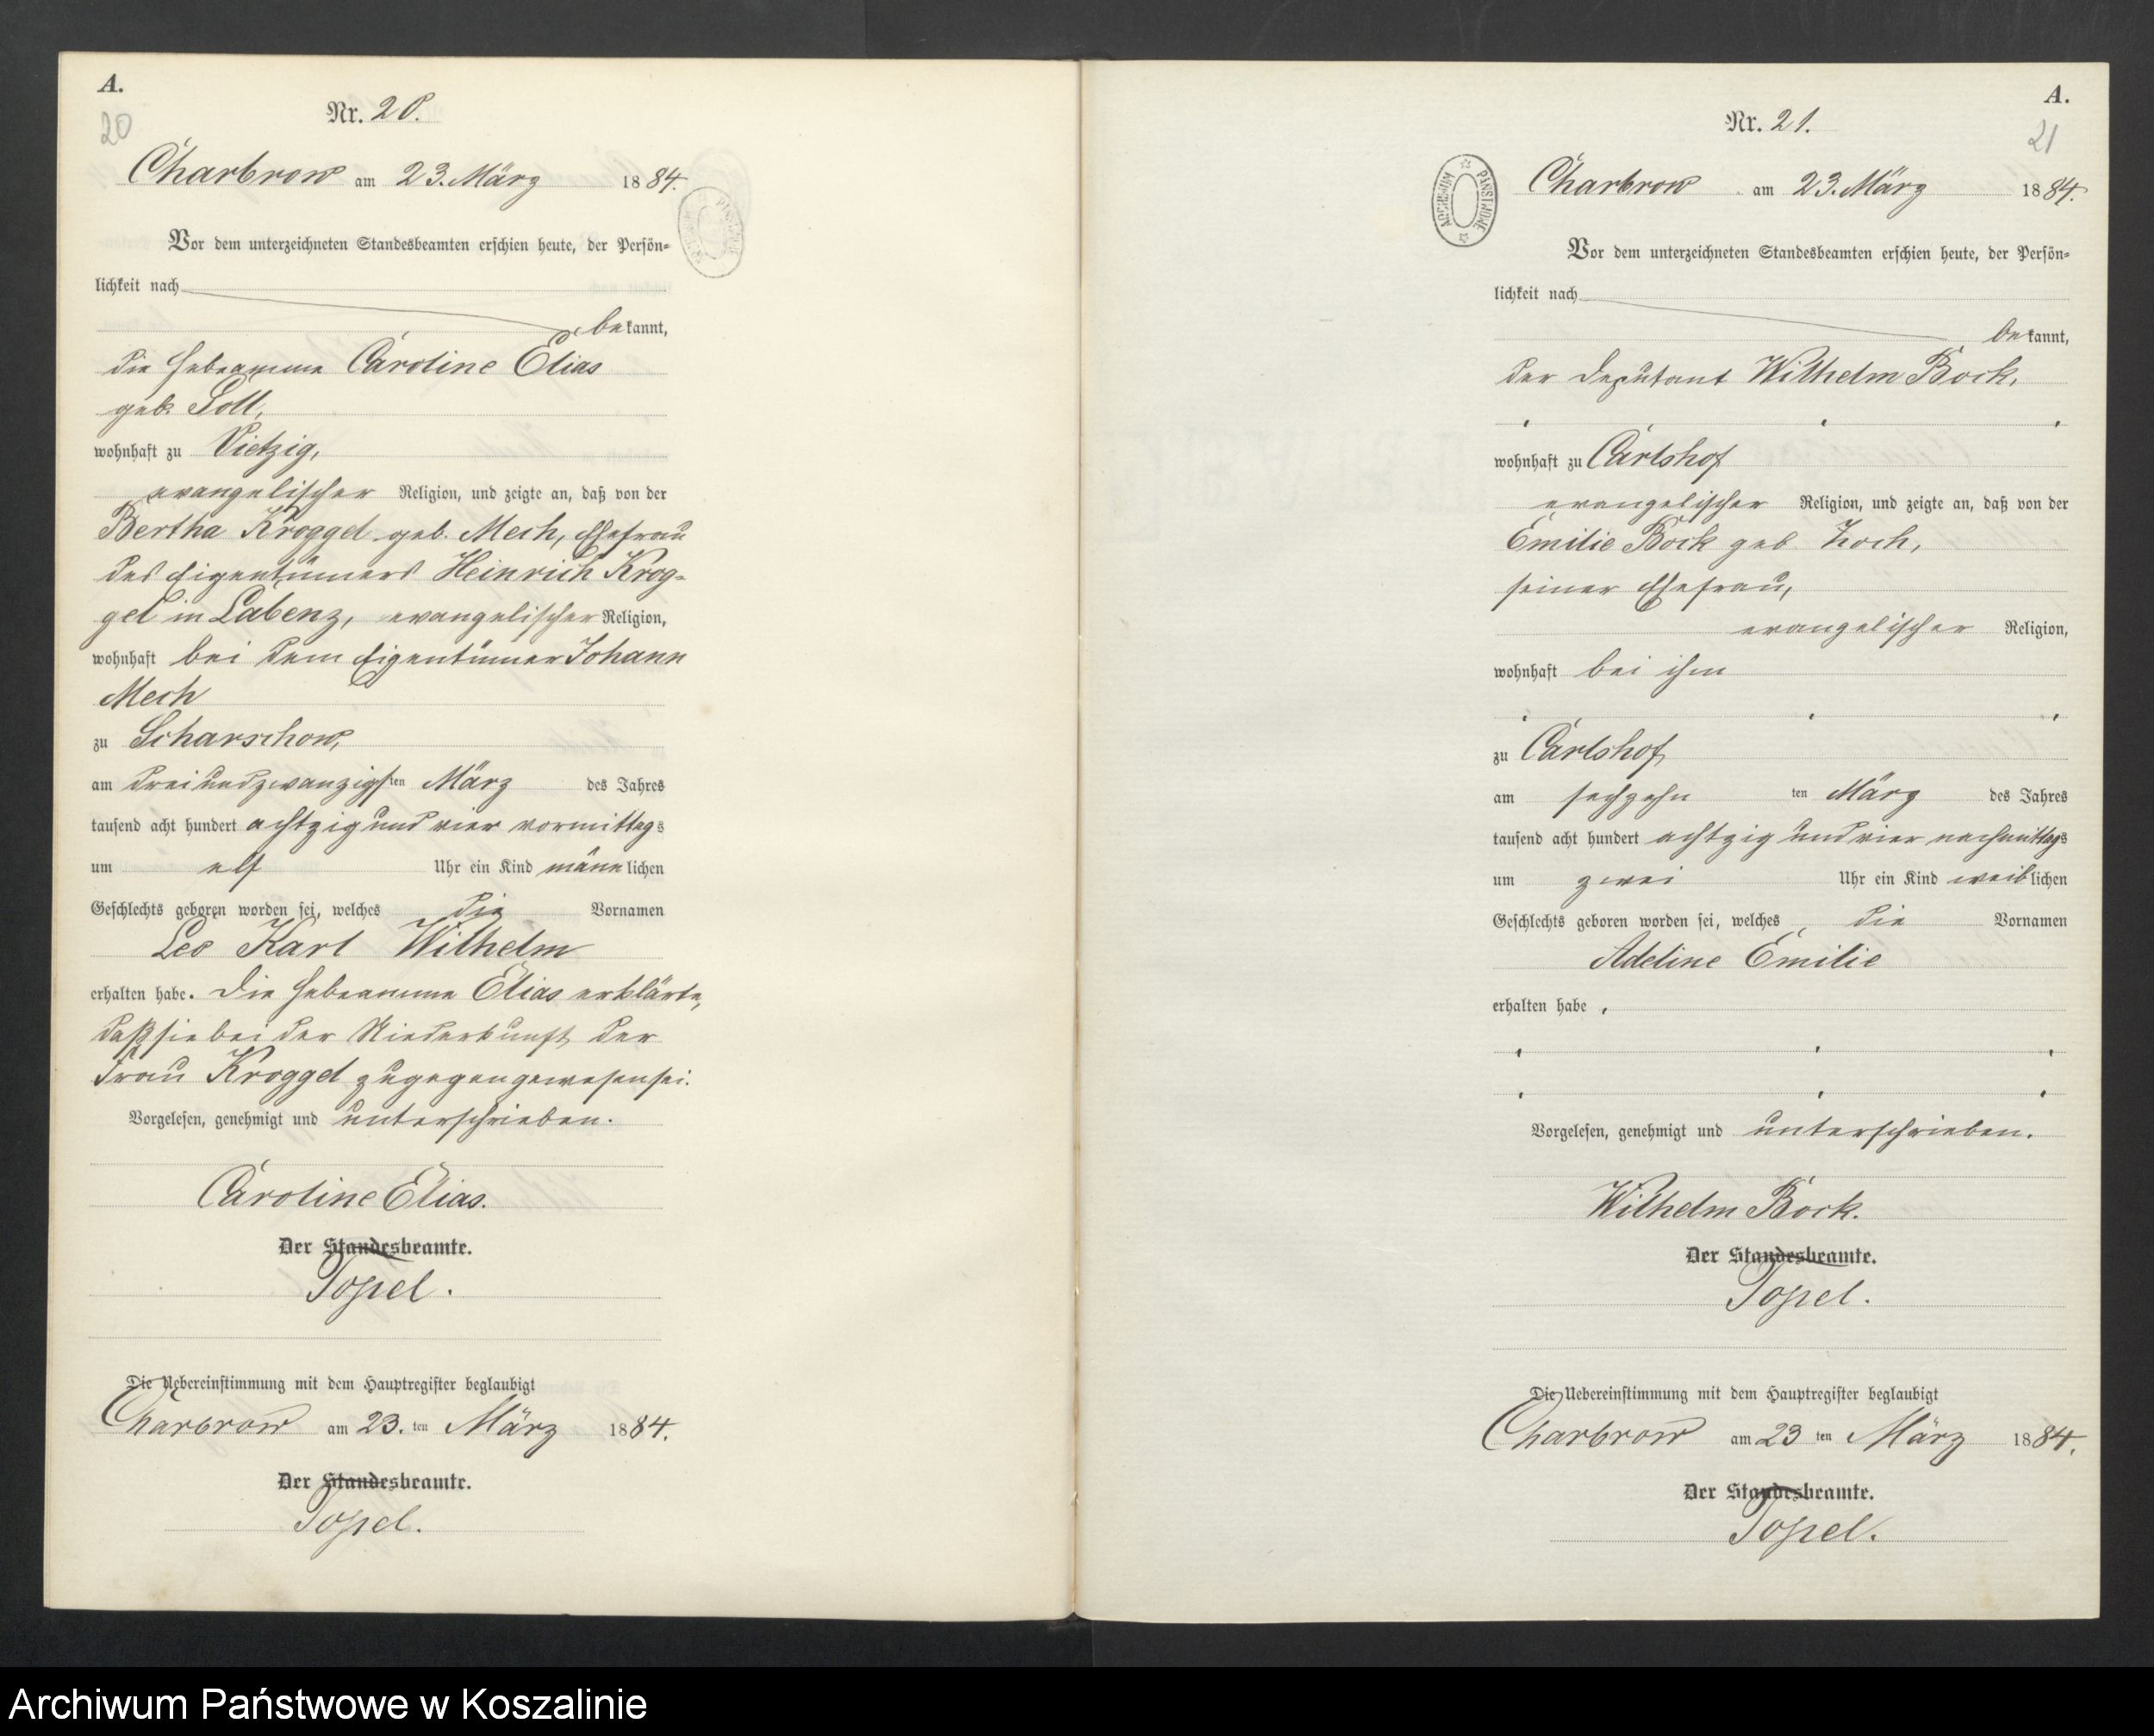 A.
20
Nr. 20.
Charbrow am 23. März 1884.
Vor dem unterzeichneten Standesbeamten erschien heute, der Persön-
lichkeit nach
bekannt,
die Hebeamme Caroline Elias
geb. Soll,
wohnhaft zu Vietzig,
evangelischer Religion, und zeigte an, daß von der
Bertha Kroggel geb. Mech, Ehefrau
des Eigentümers Heinrich Krog-
gel in Labenz, evangelischer Religion,
wohnhaft bei dem Eigentümer Johann
Mech
zu Scharschow,
am dreiundzwanzigsten März des Jahres
tausend acht hundert achtzig und vier vormittags
um elf Uhr ein Kind männlichen
Geschlechts geboren worden sei, welches die Vornamen
Leo Karl Wilhelm
erhalten habe. Die Hebeamme Elias erklärte,
daß sie bei der Niederkunft der
Frau Kroggel zugegen gewesen sei.
Vorgelesen, genehmigt und unterschrieben.
Caroline Elias.
Der Standesbeamte.
Topel.
Die Uebereinstimmung mit dem Hauptregister beglaubigt
Charbrow am 23. ten März 1884.
Der Standesbeamte.
Topel.
A.
21
Nr. 21.
ARCHIWUM PAŃSTWOWE
Charbrow am 23. März 1884.
Vor dem unterzeichneten Standesbeamten erschien heute, der Persön-
lichkeit nach
bekannt,
der Deputant Wilhelm Bock,
wohnhaft zu Carlshof
evangelischer Religion, und zeigte an, daß von der
Emilie Bock geb. Zoch,
seiner Ehefrau,
evangelischer Religion,
wohnhaft bei ihm
zu Carlshof,
am sechzehn ten März des Jahres
tausend acht hundert achtzig und vier nachmittags
um zwei Uhr ein Kind weiblichen
Geschlechts geboren worden sei, welches die Vornamen
Adeline Emilie
erhalten habe.
Vorgelesen, genehmigt und unterschrieben.
Wilhelm Bock.
Der Standesbeamte.
Topel.
Die Uebereinstimmung mit dem Hauptregister beglaubigt
Charbrow am 23 ten März 1884.
Der Standesbeamte.
Topel.
Archiwum Państwowe w Koszalinie